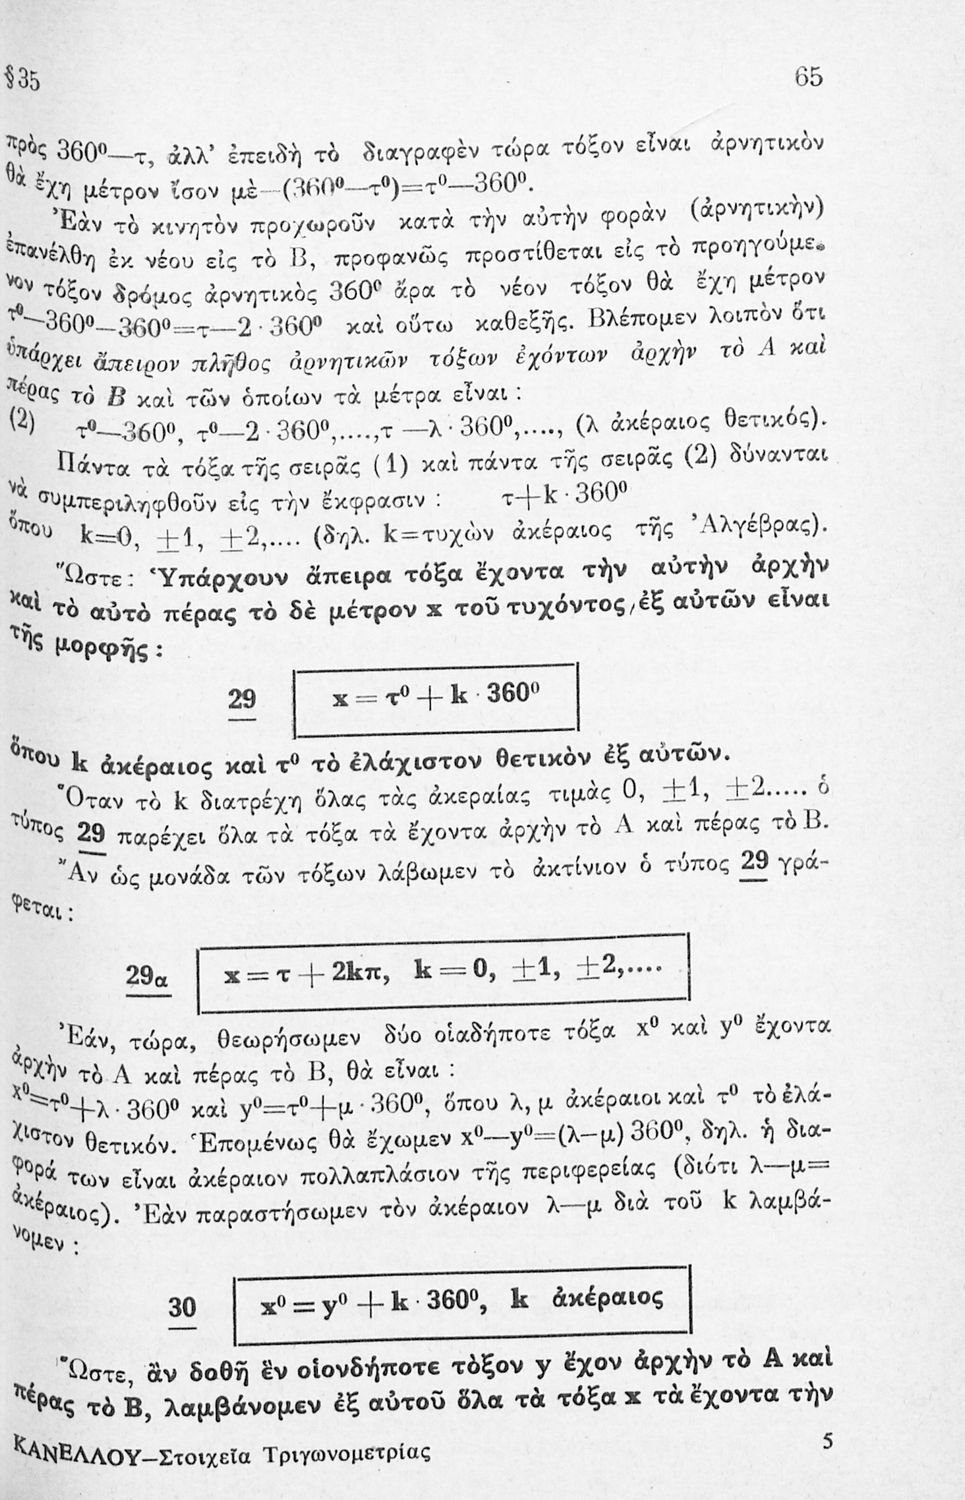 §35 65
πρὸς 360⁰—τ, ἀλλ' ἐπειδὴ τὸ διαγραφὲν τώρα τόξον εἶναι ἀρνητικὸν
θὰ ἔχη μέτρον ἴσον μὲ—(360⁰—τ⁰)=τ⁰—360⁰.
Ἐὰν τὸ κινητὸν προχωροῦν κατὰ τὴν αὐτὴν φορὰν (ἀρνητικὴν)
ἐπανέλθη ἐκ νέου εἰς τὸ Β, προφανῶς προστίθεται εἰς τὸ προηγούμε-
νον τόξον δρόμος ἀρνητικὸς 360⁰ ἄρα τὸ νέον τόξον θὰ ἔχη μέτρον
τ⁰—360⁰—360⁰=τ—2·360⁰ καὶ οὕτω καθεξῆς. Βλέπομεν λοιπὸν ὅτι
ὑπάρχει ἄπειρον πλῆθος ἀρνητικῶν τόξων ἐχόντων ἀρχὴν τὸ Α καὶ
πέρας τὸ Β καὶ τῶν ὁποίων τὰ μέτρα εἶναι :
(2) τ⁰—360⁰, τ⁰—2·360⁰,....,τ—λ·360⁰,...., (λ ἀκέραιος θετικός).
Πάντα τὰ τόξα τῆς σειρᾶς (1) καὶ πάντα τῆς σειρᾶς (2) δύνανται
νὰ συμπεριληφθοῦν εἰς τὴν ἔκφρασιν : τ+k·360⁰
ὅπου k=0, ±1, ±2,.... (δηλ. k=τυχὼν ἀκέραιος τῆς Ἀλγέβρας).
Ὥστε: Ὑπάρχουν ἄπειρα τόξα ἔχοντα τὴν αὐτὴν ἀρχὴν
καὶ τὸ αὐτὸ πέρας τὸ δὲ μέτρον x τοῦ τυχόντος ἐξ αὐτῶν εἶναι
τῆς μορφῆς :
29 x = τ⁰ + k·360⁰
ὅπου k ἀκέραιος καὶ τ⁰ τὸ ἐλάχιστον θετικὸν ἐξ αὐτῶν.
Ὅταν τὸ k διατρέχη ὅλας τὰς ἀκεραίας τιμὰς 0, ±1, ±2..... ὁ
τύπος 29 παρέχει ὅλα τὰ τόξα τὰ ἔχοντα ἀρχὴν τὸ Α καὶ πέρας τὸ Β.
Ἂν ὡς μονάδα τῶν τόξων λάβωμεν τὸ ἀκτίνιον ὁ τύπος 29 γρά-
φεται :
29α x = τ + 2kπ, k = 0, ±1, ±2,....
Ἐάν, τώρα, θεωρήσωμεν δύο οἱαδήποτε τόξα x⁰ καὶ y⁰ ἔχοντα
ἀρχὴν τὸ Α καὶ πέρας τὸ Β, θὰ εἶναι :
x⁰=τ⁰+λ·360⁰ καὶ y⁰=τ⁰+μ·360⁰, ὅπου λ, μ ἀκέραιοι καὶ τ⁰ τὸ ἐλά-
χιστον θετικόν. Ἑπομένως θὰ ἔχωμεν x⁰—y⁰=(λ—μ) 360⁰, δηλ. ἡ δια-
φορά των εἶναι ἀκέραιον πολλαπλάσιον τῆς περιφερείας (διότι λ—μ=
ἀκέραιος). Ἐὰν παραστήσωμεν τὸν ἀκέραιον λ—μ διὰ τοῦ k λαμβά-
νομεν :
30 x⁰ = y⁰ + k·360⁰, k ἀκέραιος
Ὥστε, ἂν δοθῆ ἓν οἱονδήποτε τὸξον y ἔχον ἀρχὴν τὸ Α καὶ
πέρας τὸ Β, λαμβάνομεν ἐξ αὐτοῦ ὅλα τὰ τόξα x τὰ ἔχοντα τὴν
ΚΑΝΕΛΛΟΥ—Στοιχεῖα Τριγωνομετρίας 5